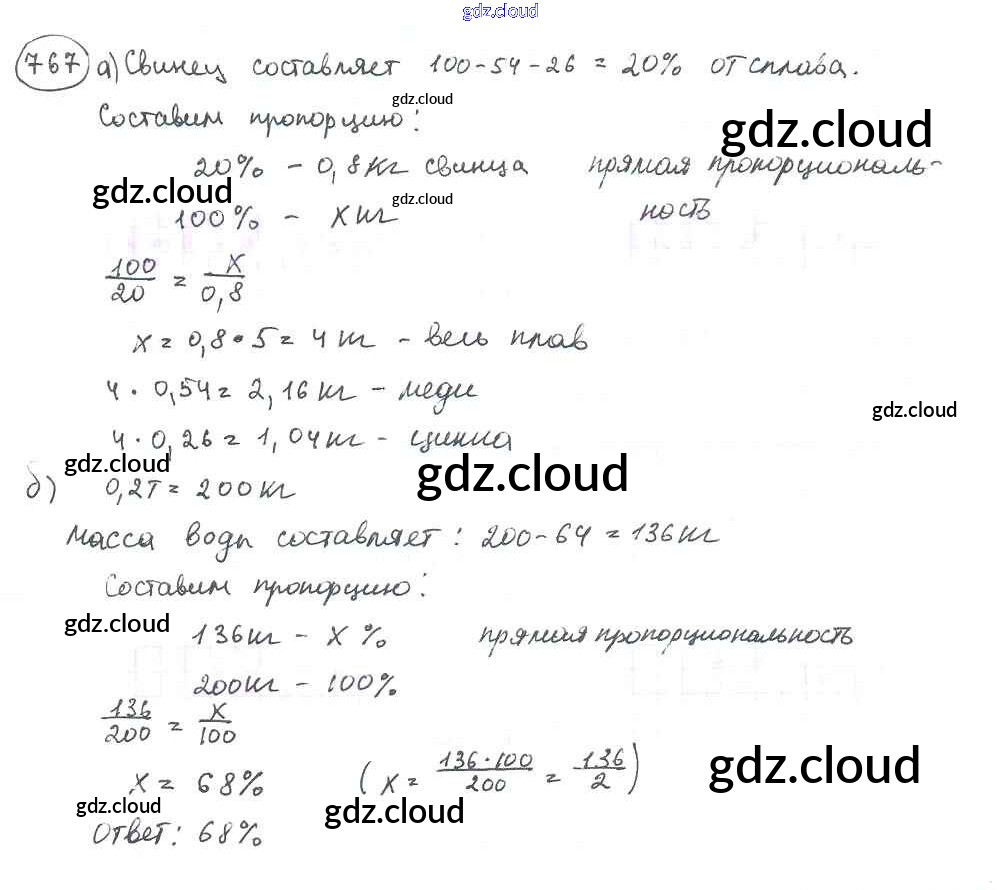 gdz.cloud
767 а) Свинец составляет 100-54-26 = 20% от сплава.
gdz.cloud
Составим пропорцию:
gdz.cloud
20% - 0,8кг свинца прямая пропорциональ-
gdz.cloud
gdz.cloud
100% - х кг ность
100/20 = х/0,8
х = 0,8 • 5 = 4 кг - весь плав
4 · 0,54 = 2,16 кг - меди
gdz.cloud
4 · 0,26 = 1,04 кг - цинка
gdz.cloud
gdz.cloud
б) 0,2т = 200 кг
Масса воды составляет: 200-64 = 136 кг
Составим пропорцию:
gdz.cloud
136 кг - х % прямая пропорциональность
200 кг - 100%
136/200 = х/100
gdz.cloud
х = 68% (х = 136·100/200 = 136/2)
gdz.cloud
gdz.cloud
Ответ: 68%